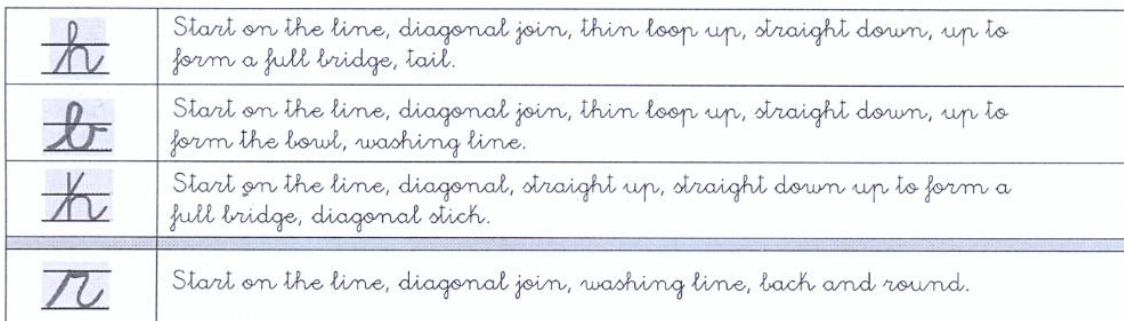 h
Start on the line, diagonal join, thin loop up, straight down, up to
form a full bridge, tail.
b
Start on the line, diagonal join, thin loop up, straight down, up to
form the bowl, washing line.
k
Start on the line, diagonal, straight up, straight down up to form a
full bridge, diagonal stick.
r
Start on the line, diagonal join, washing line, back and round.